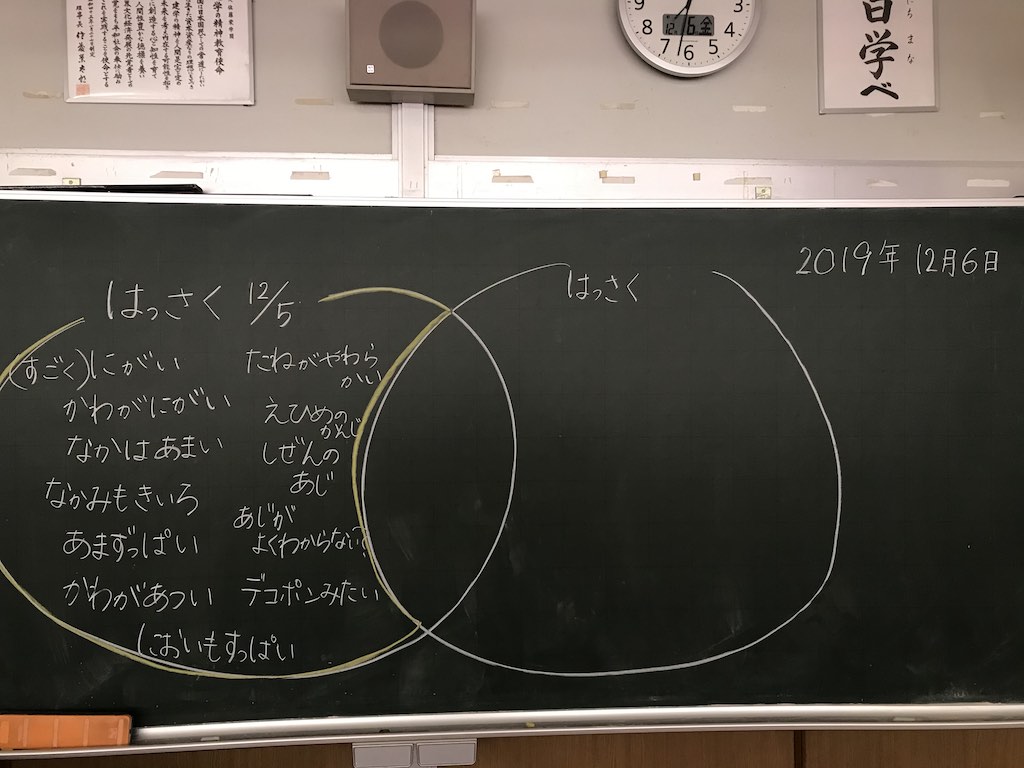 学の精神教育使命
日学べ
にちまな
9 3
8 4
7 6 5
12 6 金
2019年 12月6日
はっさく 12/5
(すごく)にがい
かわがにがい
なかはあまい
なかみもきいろ
あまずっぱい
かわがあつい
においもすっぱい
たねがやわら
かい
えひめの
かんじ
しぜんの
あじ
あじが
よくわからない?
デコポンみたい
はっさく